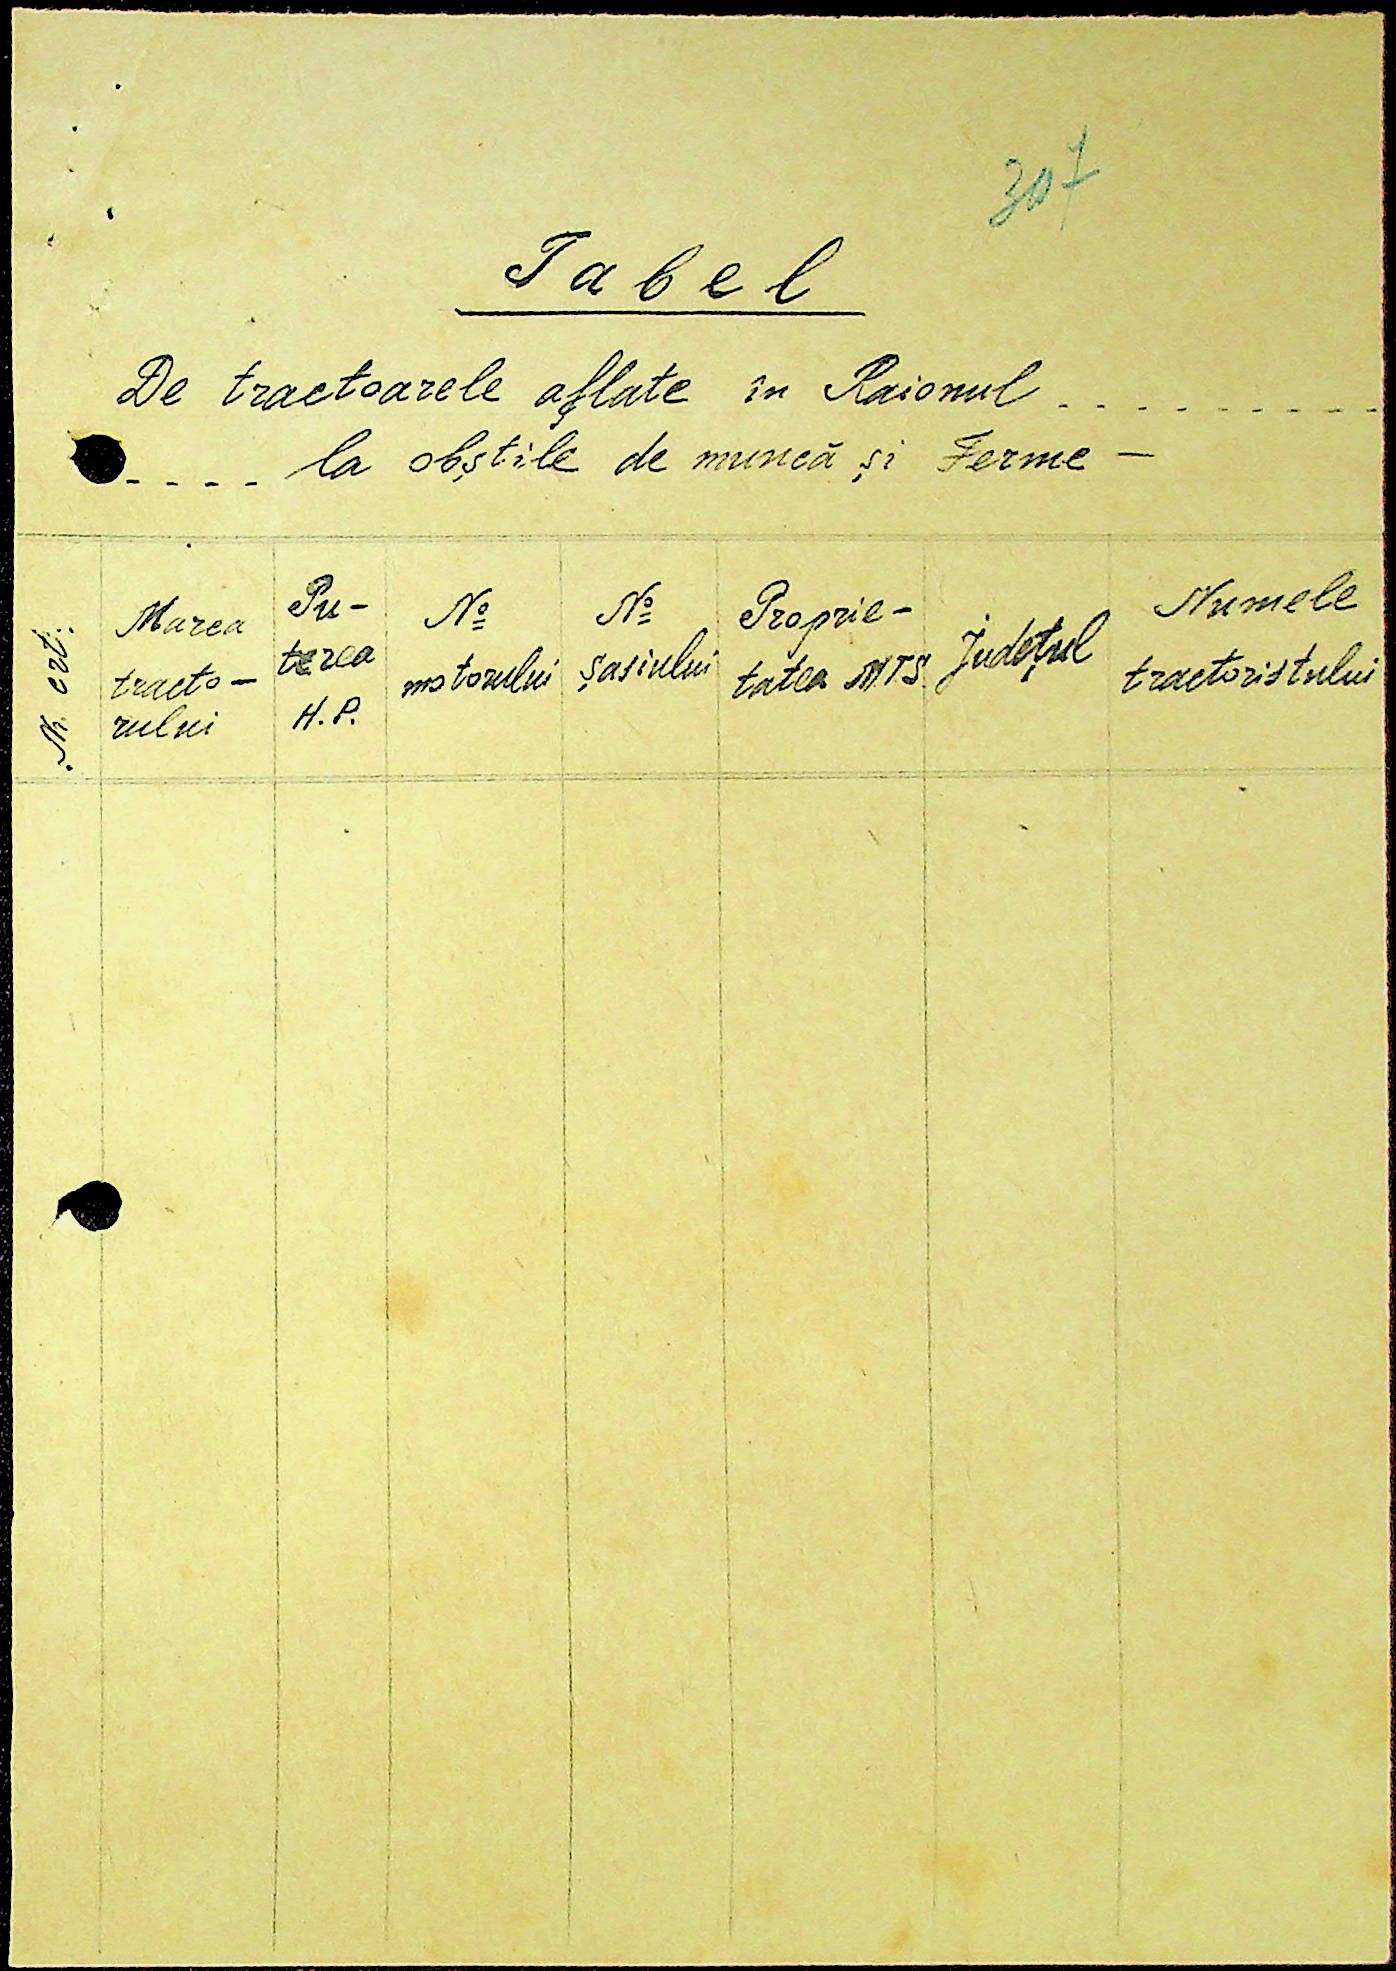 307
Tabel
De tractoarele aflate în Raionul . . . . . . . . . .
. - - - - la obștile de muncă și Ferme —
Nr. crt.
Marca
tracto-
rului
Pu-
terea
H.P.
No
motorului
No
șasiului
Proprie-
tatea MTS
Județul
Numele
tractoristului